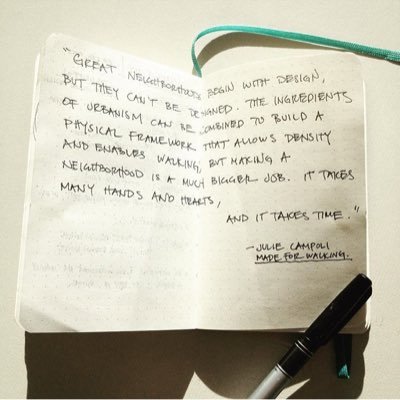 "GREAT NEIGHBORHOODS BEGIN WITH DESIGN,
BUT THEY CAN'T BE DESIGNED. THE INGREDIENTS
OF URBANISM CAN BE COMBINED TO BUILD A
PHYSICAL FRAMEWORK THAT ALLOWS DENSITY
AND ENABLES WALKING, BUT MAKING A
NEIGHBORHOOD IS A MUCH BIGGER JOB. IT TAKES
MANY HANDS AND HEARTS,
AND IT TAKES TIME."
— JULIE CAMPOLI
MADE FOR WALKING.